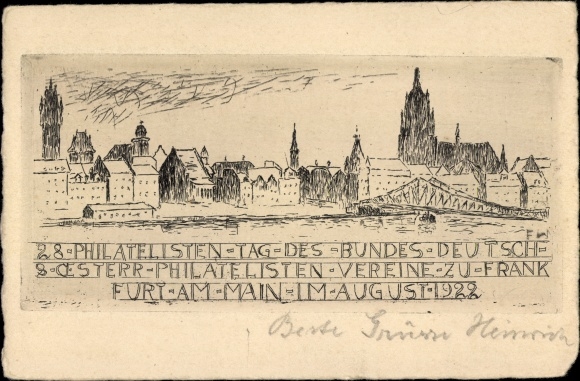 28-PHILATELISTEN-TAG-DES-BUNDES-DEUTSCH-
&-ŒSTERR-PHILATELISTEN-VEREINE-ZU-FRANK
FURT-AM-MAIN-IM-AUGUST-1922
Beste Grüsse Heinrich